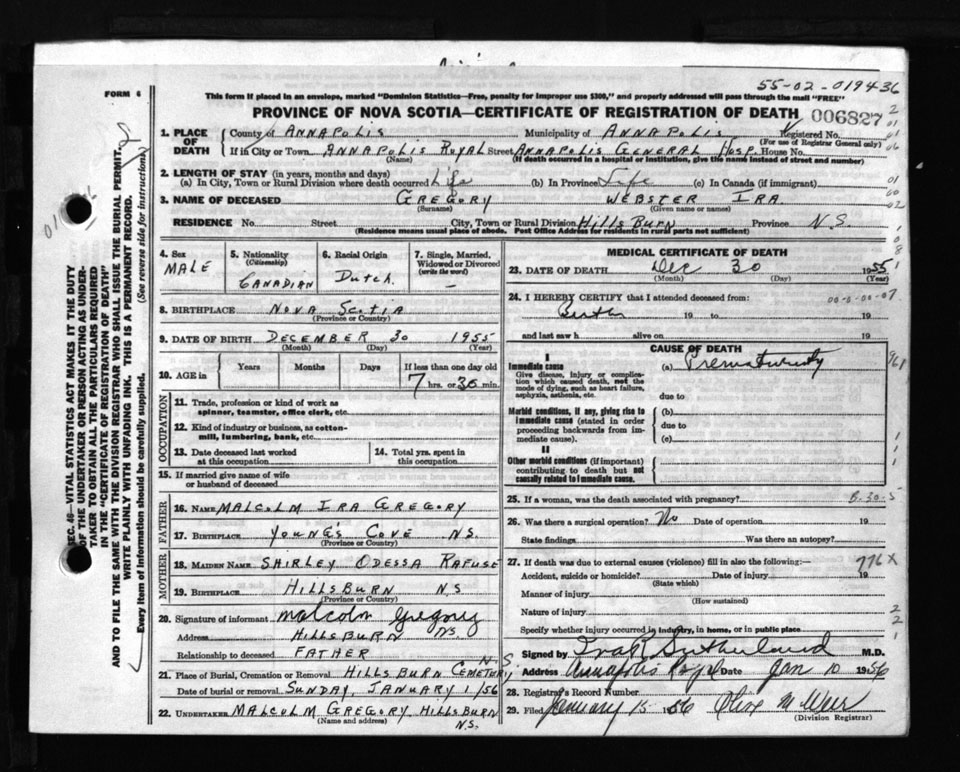 55-02-019436
FORM 6
This form if placed in an envelope, marked "Dominion Statistics—Free, penalty for improper use $300," and properly addressed will pass through the mail "FREE"
PROVINCE OF NOVA SCOTIA—CERTIFICATE OF REGISTRATION OF DEATH 006827
1. PLACE OF DEATH
County of ANNAPOLIS Municipality of ANNAPOLIS Registered No.
(For use of Registrar General only)
If in City or Town ANNAPOLIS ROYAL Street ANNAPOLIS GENERAL HOSP. House No.
(Name) (If death occurred in a hospital or institution, give the name instead of street and number)
2. LENGTH OF STAY (in years, months and days)
(a) In City, Town or Rural Division where death occurred Life (b) In Province Life (c) In Canada (if immigrant)
3. NAME OF DECEASED GREGORY WEBSTER IRA.
(Surname) (Given name or names)
RESIDENCE No. Street City, Town or Rural Division HILLSBURN Province N.S.
(Residence means usual place of abode. Post Office Address for residents in rural parts not sufficient)
4. Sex
MALE
5. Nationality (Citizenship)
CANADIAN
6. Racial Origin
Dutch.
7. Single, Married, Widowed or Divorced (write the word)
—
8. BIRTHPLACE NOVA SCOTIA
(Province or Country)
9. DATE OF BIRTH DECEMBER 30 1955
(Month) (Day) (Year)
10. AGE in Years Months Days If less than one day old
7 hrs. or 30 min.
OCCUPATION
11. Trade, profession or kind of work as spinner, teamster, office clerk, etc.
12. Kind of industry or business, as cotton-mill, lumbering, bank, etc.
13. Date deceased last worked at this occupation
14. Total yrs. spent in this occupation
15. If married give name of wife or husband of deceased
FATHER
16. NAME MALCOLM IRA GREGORY
17. BIRTHPLACE YOUNG'S COVE N.S.
(Province or Country)
MOTHER
18. MAIDEN NAME SHIRLEY ODESSA RAFUSE
19. BIRTHPLACE HILLSBURN N.S
(Province or Country)
20. Signature of informant Malcolm Gregory
Address HILLSBURN N.S.
Relationship to deceased FATHER
21. Place of Burial, Cremation or Removal HILLSBURN CEMETERY N.S.
Date of burial or removal SUNDAY, JANUARY 1/56
22. UNDERTAKER MALCOLM GREGORY HILLSBURN
(Name and address) N.S.
MEDICAL CERTIFICATE OF DEATH
23. DATE OF DEATH Dec 30 1955
(Month) (Day) (Year)
24. I HEREBY CERTIFY that I attended deceased from:
Birth 19 to 19
and last saw h alive on 19
CAUSE OF DEATH
I
Immediate cause
Give disease, injury or complication which caused death, not the mode of dying, such as heart failure, asphyxia, asthenia, etc.
(a) Prematurity
due to
Morbid conditions, if any, giving rise to immediate cause (stated in order proceeding backwards from immediate cause).
(b)
due to
(c)
II
Other morbid conditions (if important) contributing to death but not causally related to immediate cause.
25. If a woman, was the death associated with pregnancy?
26. Was there a surgical operation? No Date of operation 19
State findings Was there an autopsy?
27. If death was due to external causes (violence) fill in also the following:— 776X
Accident, suicide or homicide? Date of injury 19
(State which)
Manner of injury
(How sustained)
Nature of injury
Specify whether injury occurred in industry, in home, or in public place
Signed by Ira R Sutherland M.D.
Address Annapolis Royal Date Jan 10 1956
28. Registrar's Record Number
29. Filed January 15 1956 Olive M Weir
(Division Registrar)
SEC. 46—VITAL STATISTICS ACT MAKES IT THE DUTY
OF THE UNDERTAKER OR PERSON ACTING AS UNDER-
TAKER TO OBTAIN ALL THE PARTICULARS REQUIRED
IN THE "CERTIFICATE OF REGISTRATION OF DEATH"
AND TO FILE THE SAME WITH THE DIVISION REGISTRAR WHO SHALL ISSUE THE BURIAL PERMIT.
WRITE PLAINLY WITH UNFADING INK. THIS IS A PERMANENT RECORD.
Every item of information should be carefully supplied. (See reverse side for instructions)